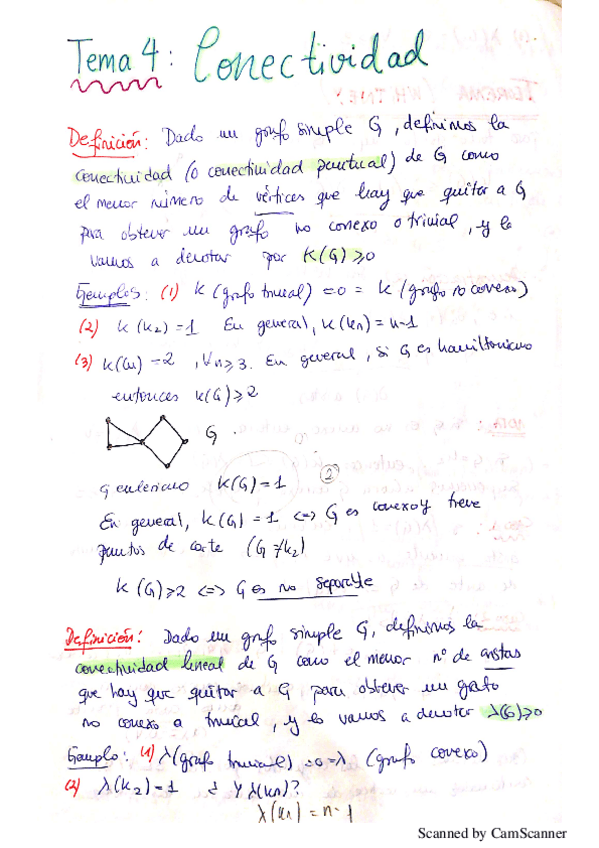 Tema 4: Conectividad
Definición: Dado un grafo simple G, definimos la
conectividad (o conectividad puntual) de G como
el menor número de vértices que hay que quitar a G
para obtener un grafo no conexo o trivial, y lo
vamos a denotar por K(G) ≥ 0
Ejemplos: (1) K (grafo trivial) = 0 = K (grafo no conexo)
(2) K (K₂) = 1 En general, K(Kn) = n-1
(3) K(Cn) = 2, ∀n ≥ 3. En general, si G es hamiltoniano
entonces K(G) ≥ 2
G
G euleriano K(G) = 1 (2)
En general, K(G) = 1 <=> G es conexo y tiene
puntos de corte (G ≠ K₂)
K (G) ≥ 2 <=> G es no separable
Definición: Dado un grafo simple G, definimos la
conectividad lineal de G como el menor nº de aristas
que hay que quitar a G, para obtener un grafo
no conexo a trivial, y lo vamos a denotar λ(G) ≥ 0
Ejemplo: (1) λ(grafo trivial) = 0 = λ (grafo conexo)
(2) λ(K₂) = 1 ¿ Y λ(Kn)?
λ(Kn) = n-1
Scanned by CamScanner